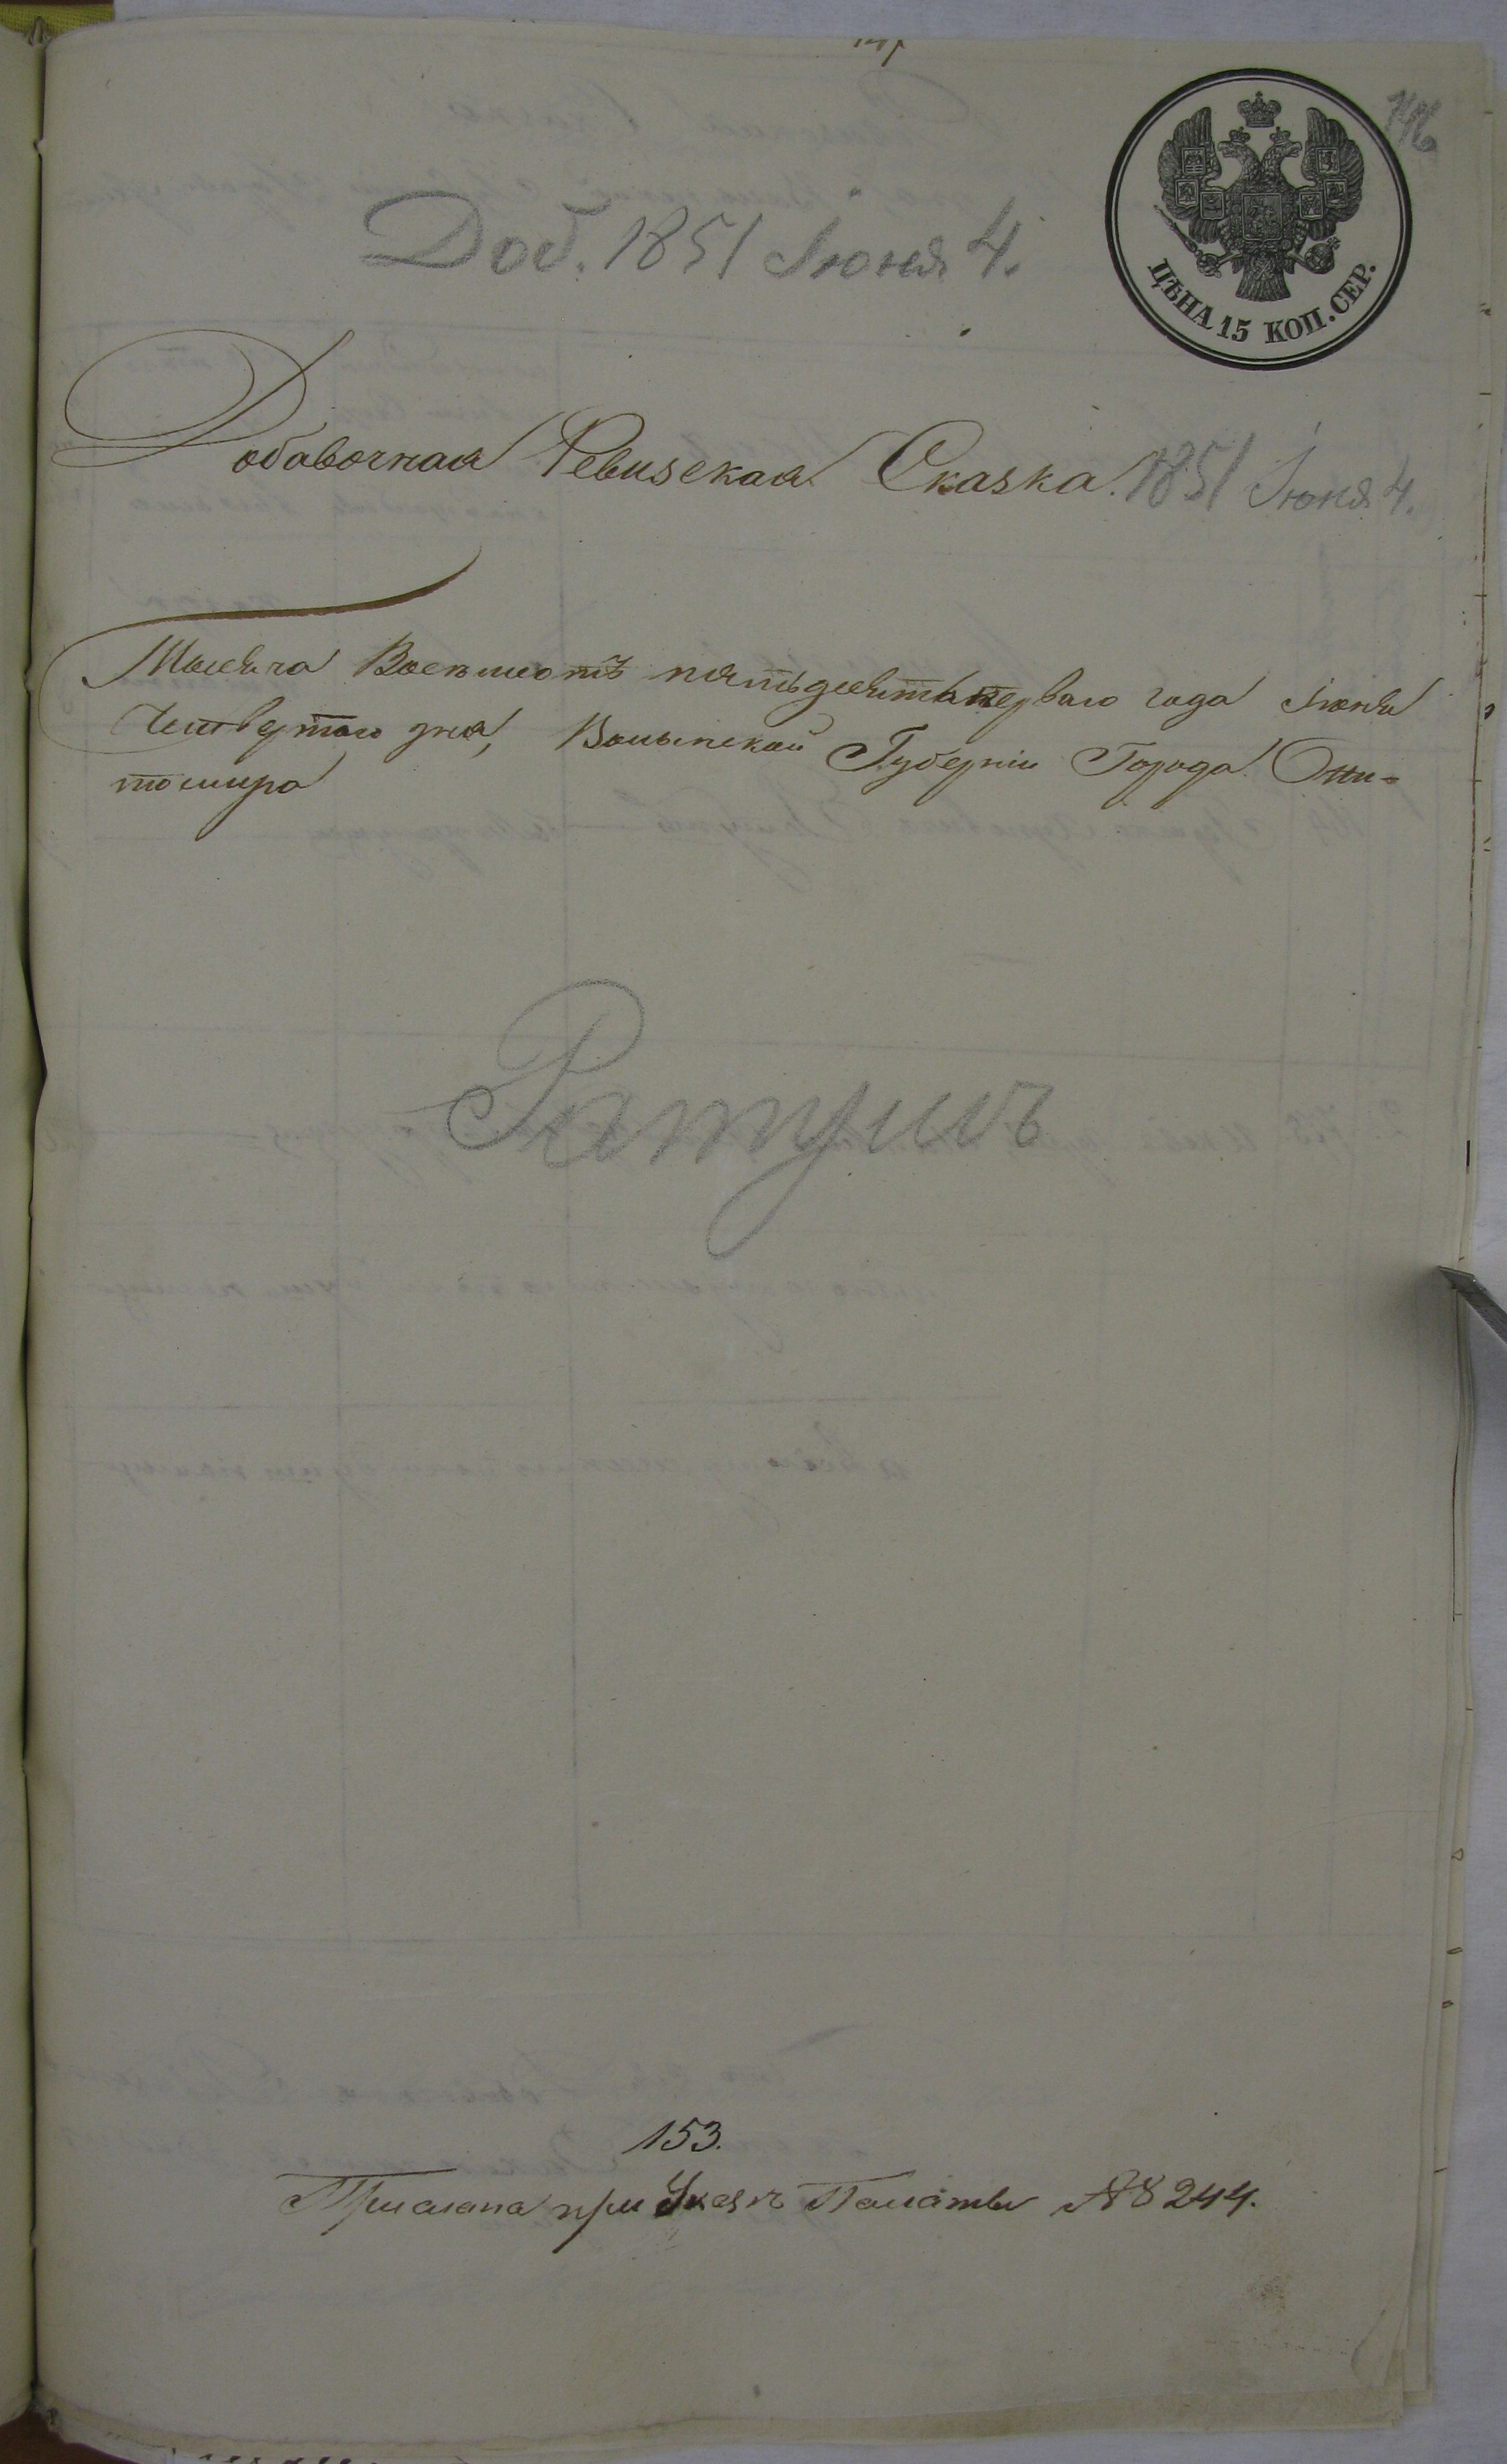 146
Доб. 1851 Июня 4.
ЦѢНА 15 КОП. СЕР.
Добавочная Ревизская Сказка. 1851 Июня 4.
Тысяча Восемьсотъ пятьдесятъ перваго года Июня
Четвертаго дня, Волынской Губерніи Города Жи-
томира
153.
Прислана при Указѣ Палаты № 8244.